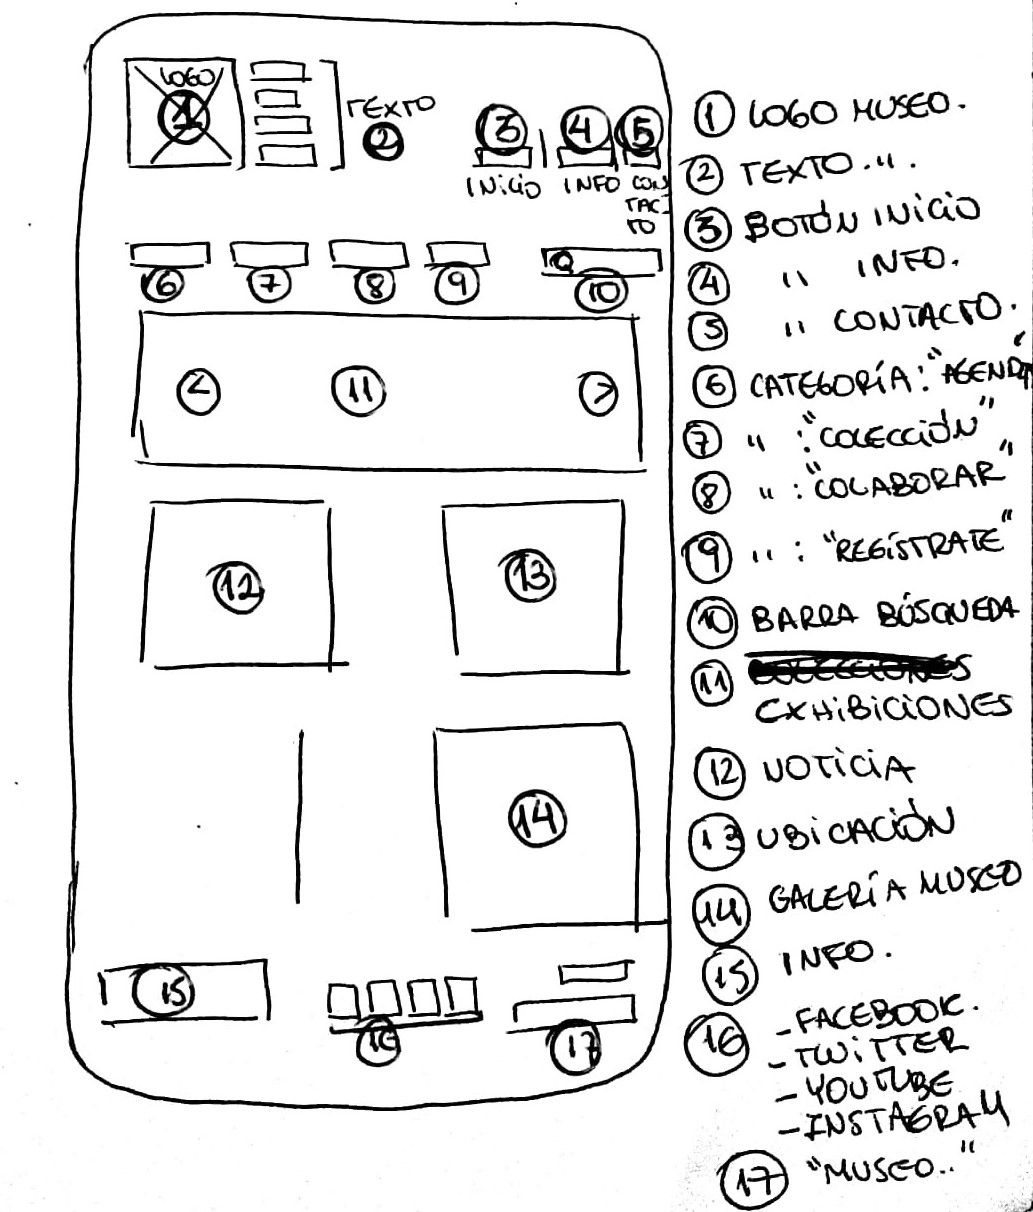 LOGO
1
TEXTO
2
3
4
5
INICIO
INFO
CON
TAC-
TO
6
7
8
9
10
<
11
>
12
13
14
15
16
17
1 LOGO MUSEO.
2 TEXTO ..".
3 BOTÓN INICIO
4 " INFO.
5 " CONTACTO.
6 CATEGORÍA: "AGENDA"
7 " : "COLECCIÓN"
8 " : "COLABORAR"
9 " : "REGÍSTRATE"
10 BARRA BÚSQUEDA
11 COLECCIONES
EXHIBICIONES
12 NOTICIA
13 UBICACIÓN
14 GALERÍA MUSEO
15 INFO.
16 - FACEBOOK.
- TWITTER
- YOUTUBE
- INSTAGRAM
17 "MUSEO.."